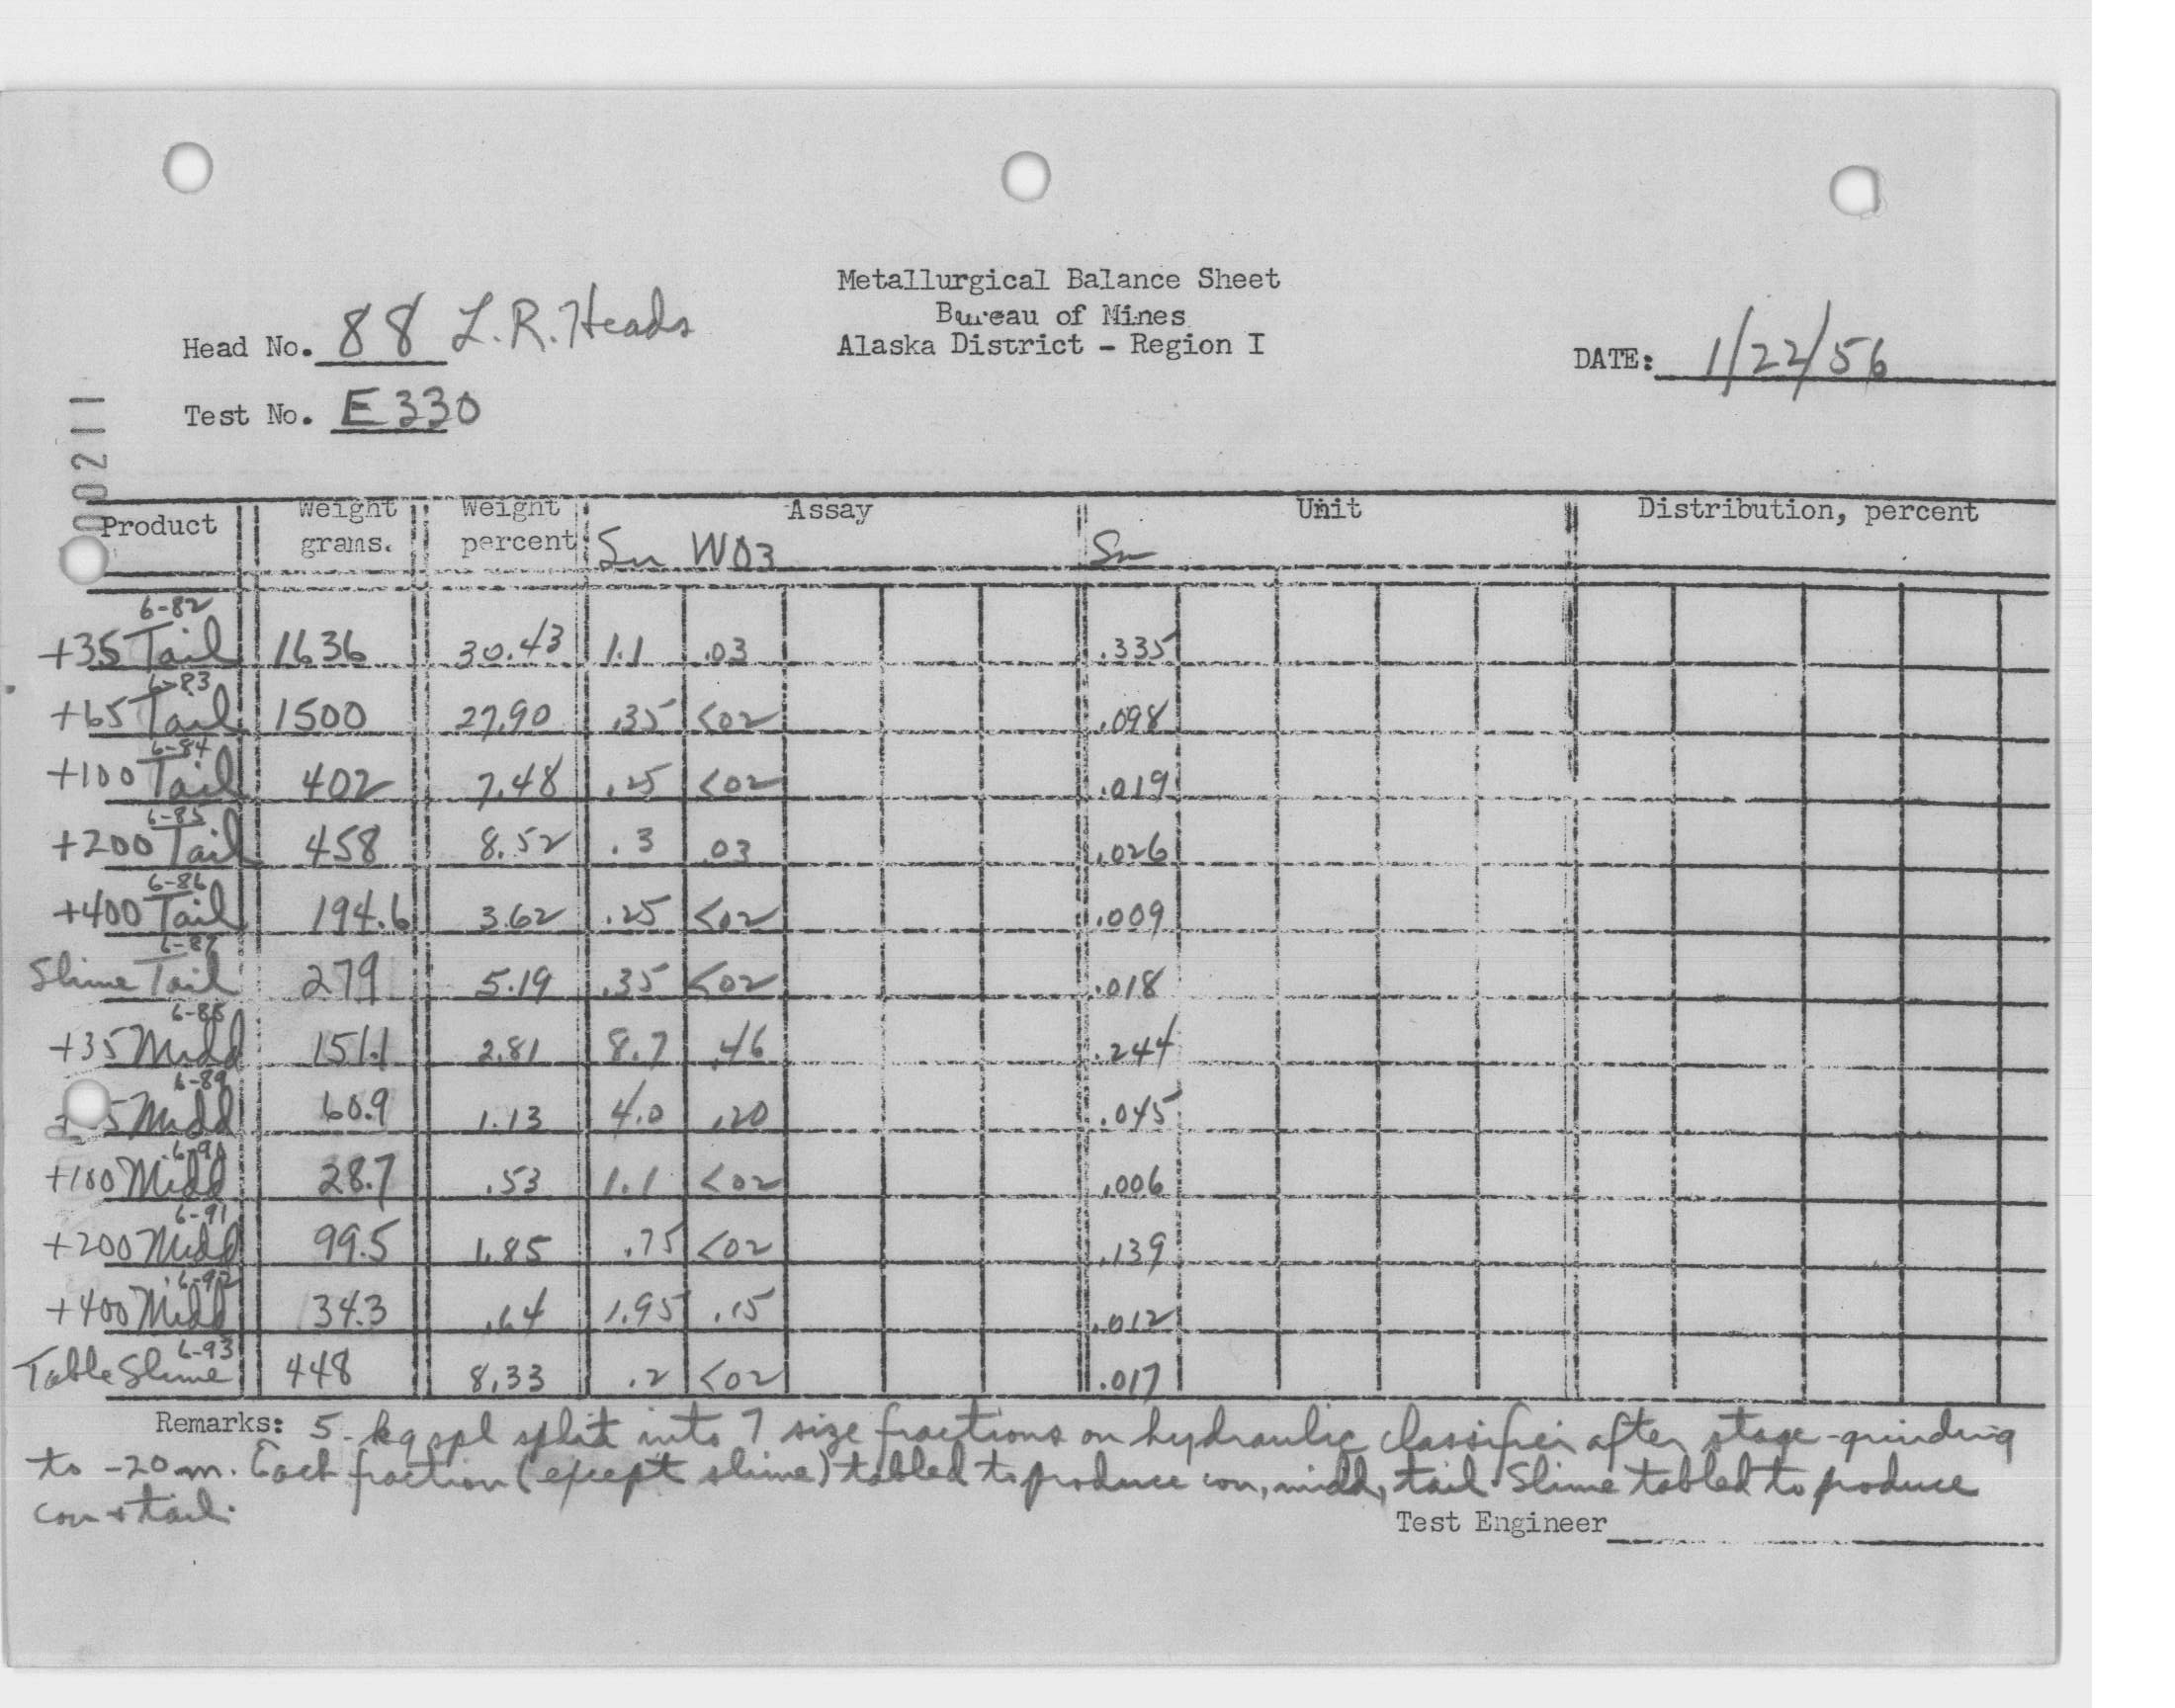 Metallurgical Balance Sheet
Bureau of Mines
Alaska District - Region I
Head No. 88 L.R. Heads
DATE: 1/22/56
Test No. E330
00211
Product Weight grams. Weight percent Assay Unit Distribution, percent
Sn WO3 Sn
6-82
+35 Tail 1636 30.43 1.1 .03 .335
6-83
+65 Tail 1500 27.90 .35 <02 .098
6-84
+100 Tail 402 7.48 .25 <02 .019
6-85
+200 Tail 458 8.52 .3 .03 .026
6-86
+400 Tail 194.6 3.62 .25 <02 .009
6-87
Slime Tail 279 5.19 .35 <02 .018
6-88
+35 Midd 151.1 2.81 8.7 .46 .244
6-89
5 Midd 60.9 1.13 4.0 .20 .045
6-90
+100 Midd 28.7 .53 1.1 <02 .006
6-91
+200 Midd 99.5 1.85 .75 <02 .139
6-92
+400 Midd 34.3 .64 1.95 .15 .012
6-93
Table Slime 448 8.33 .2 <02 .017
Remarks: 5-kg spl split into 7 size fractions on hydraulic classifier after stage-grinding
to -20 m. Each fraction (except slime) tabled to produce con, midd, tail. Slime tabled to produce
con & tail.
Test Engineer